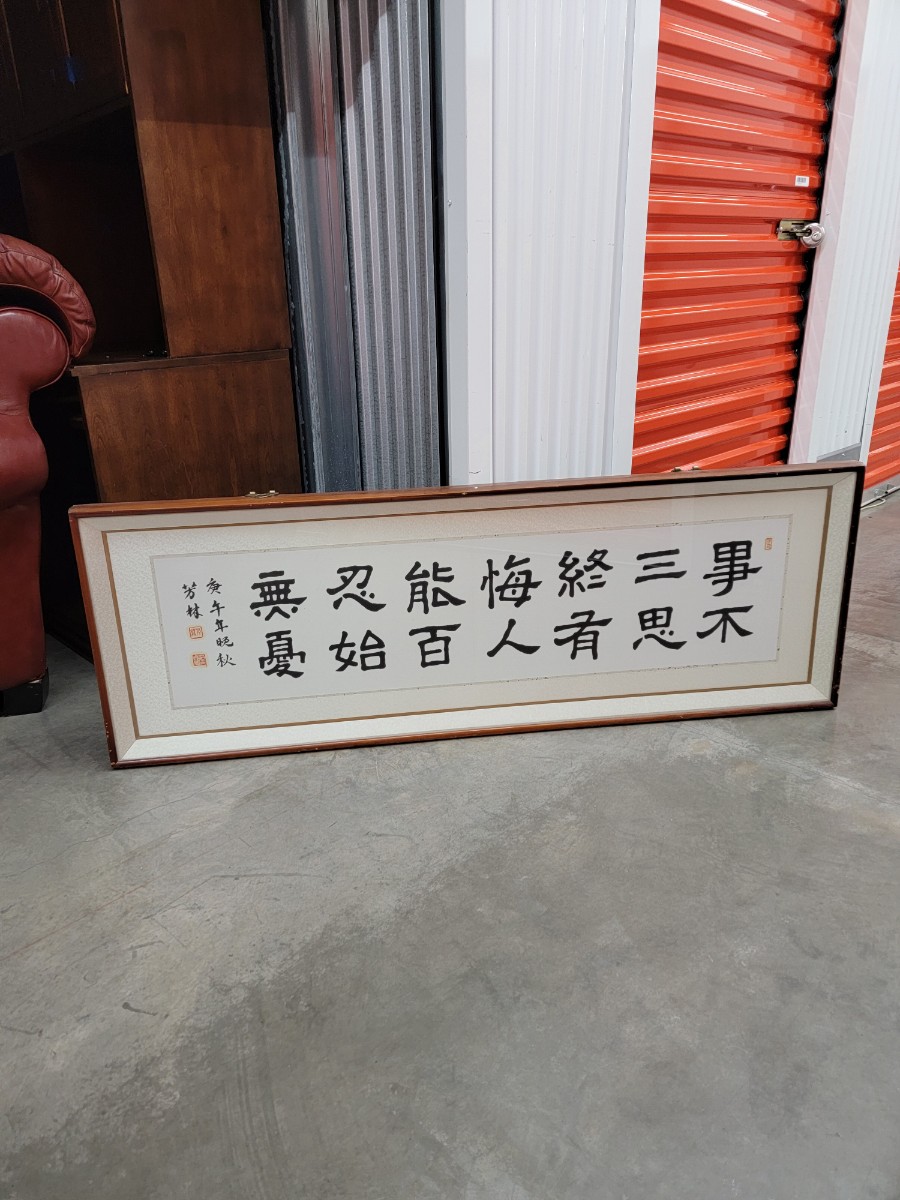 事不
三思
終有
悔人
能百
忍始
無憂
庚午年晚秋
芳